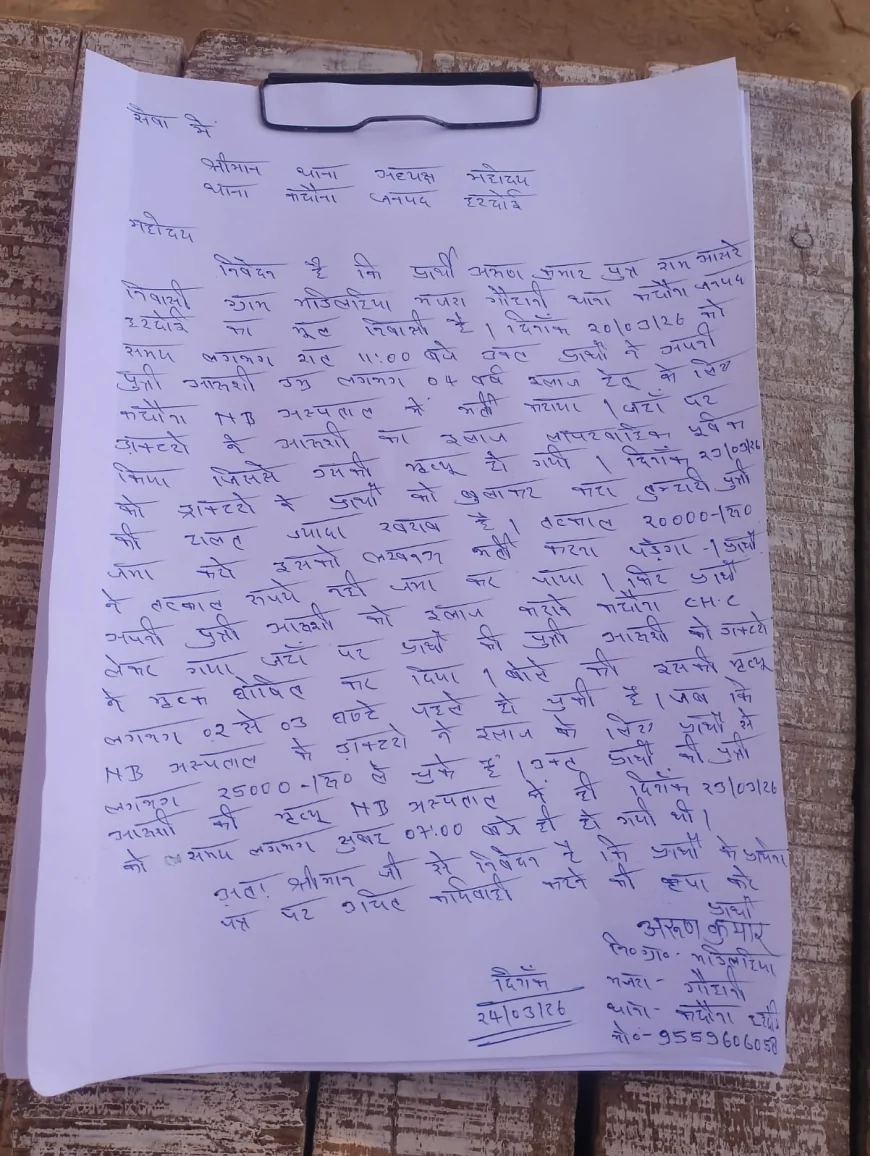 सेवा में
श्रीमान थाना अध्यक्ष महोदय
थाना कछौना जनपद हरदोई
महोदय
निवेदन है कि प्रार्थी अरूण कुमार पुत्र राम आसरे
निवासी ग्राम मजरा गौहानी थाना कछौना जनपद
हरदोई का मूल निवासी है। दिनाँक 20/03/26 को
समय लगभग रात 11:00 बजे उक्त प्रार्थी ने अपनी
पुत्री आरूशी उम्र लगभग 04 वर्ष इलाज हेतू के लिए
कछौना NB अस्पताल में भर्ती कराया। जहाँ पर
डाक्टरो ने आरूशी का इलाज पूर्वक
किया जिससे उसकी मृत्यू हो गयी। दिनाँक 23/03/26
को डाक्टरो ने प्रार्थी को बुलाकर कहा तुम्हारी पुत्री
की हालत ज्यादा खराब है। तत्काल 20000-/रू0
जमा करो इसको लखनऊ भर्ती करना पड़ेगा-। प्रार्थी
ने तत्काल रूपये नही जमा कर पाया। फिर प्रार्थी
अपनी पुत्री आरूशी को इलाज कराने कछौना C.H.C
लेकर गया जहाँ पर प्रार्थी की पुत्री आरूशी को डाक्टरो
ने मृतक घोषित कर दिया। बोले की इसकी मृत्यू
लगभग 02 से 03 घण्टे पहले हो चुकी है। जब कि
NB अस्पताल के डाक्टरो ने इलाज के लिए प्रार्थी से
लगभग 25000-/रू0 ले चुके है। उक्त प्रार्थी की पुत्री
आरूशी की मृत्यू NB अस्पताल में ही दिनाँक 23/03/26
को समय लगभग सुबह 07:00 बजे ही हो गयी थी।
अतः श्रीमान जी से निवेदन है कि प्रार्थी के प्रार्थना
पत्र पर उचित कार्यवाही करने की कृपा करे
प्रार्थी
अरूण कुमार
नि०ग्रा०-
मजरा- गौहानी
थाना- कछौना हरदोई
मो०-9559606058
दिनाँक
24/03/26